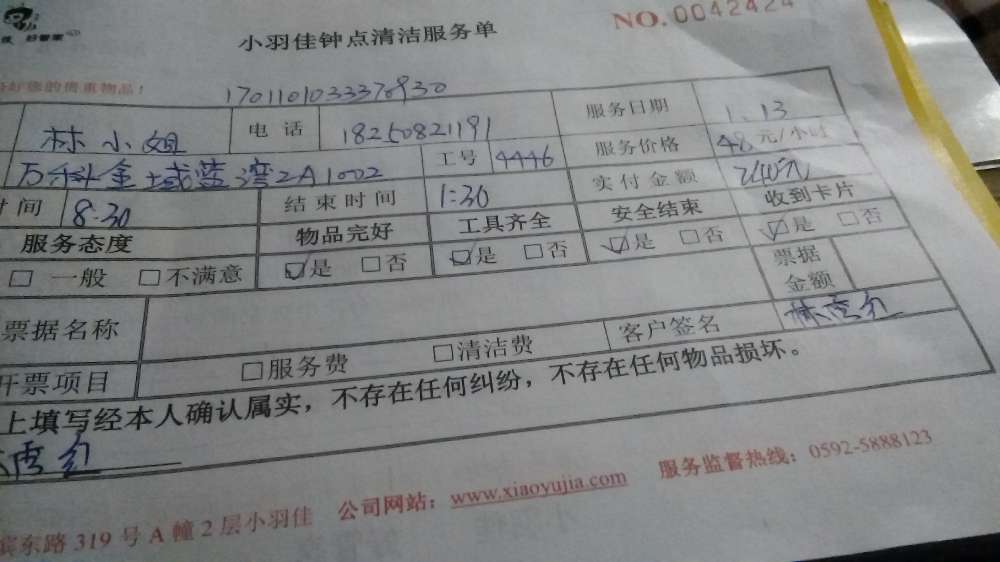 好管家
小羽佳钟点清洁服务单
NO.0042424
好您的贵重物品！
1701101033370930
林小姐 电话 18250821191 服务日期 1.13
万科金域蓝湾2A1002 工号 4446 服务价格 48元/小时
时间 8:30 结束时间 1:30 实付金额 240元
服务态度 物品完好 工具齐全 安全结束 收到卡片
□ 一般 □不满意 ☑是 □否 ☑是 □否 ☑是 □否 ☑是 □否
票据名称 票据金额
开票项目 □服务费 □清洁费 客户签名 林雪红
上填写经本人确认属实，不存在任何纠纷，不存在任何物品损坏。
雪红
滨东路319号A幢2层小羽佳 公司网站：www.xiaoyujia.com 服务监督热线：0592-5888123